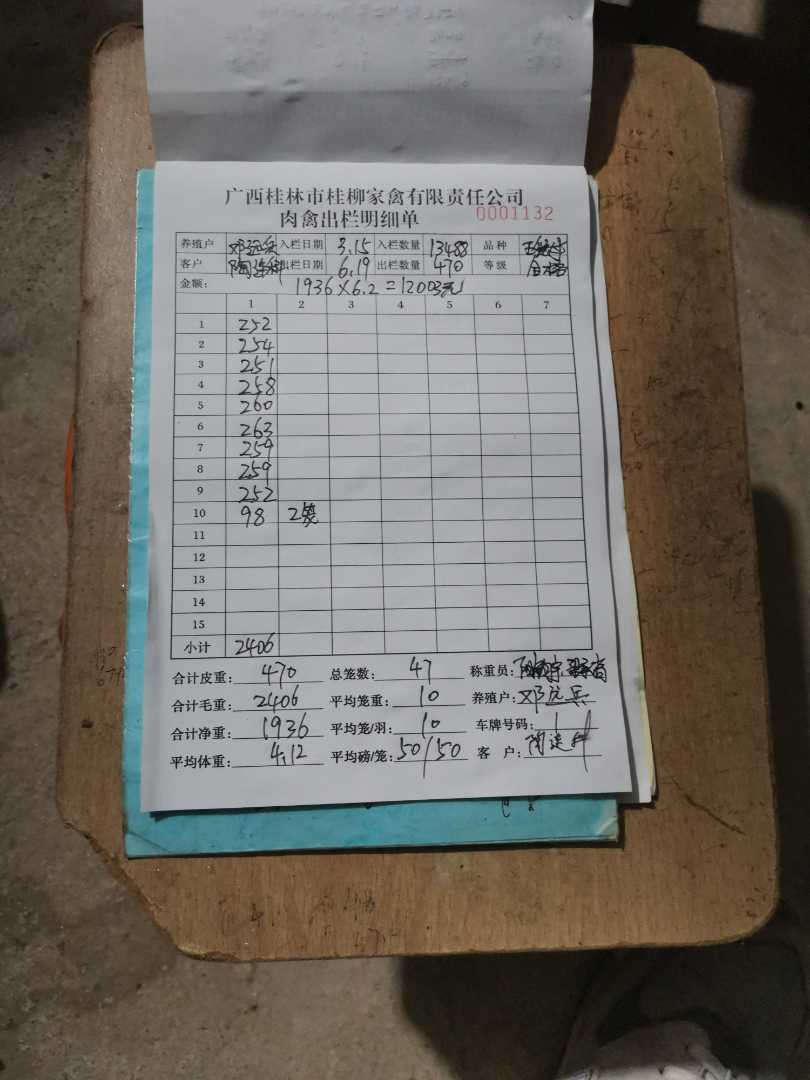 广西桂林市桂柳家禽有限责任公司
肉禽出栏明细单 0001132
养殖户 邓远兵 入栏日期 3.15 入栏数量 13488 品种
客户 陶连科 出栏日期 6.19 出栏数量 470 等级
金额: 1936×6.2=12003元
1 2 3 4 5 6 7
1 252
2 254
3 251
4 258
5 260
6 263
7 259
8 259
9 252
10 98 2笼
11
12
13
14
15
小计 2406
合计皮重: 470 总笼数: 47 称重员:
合计毛重: 2406 平均笼重: 10 养殖户: 邓远兵
合计净重: 1936 平均笼/羽: 10 车牌号码:
平均体重: 4.12 平均磅/笼: 50/50 客 户: 陶连科